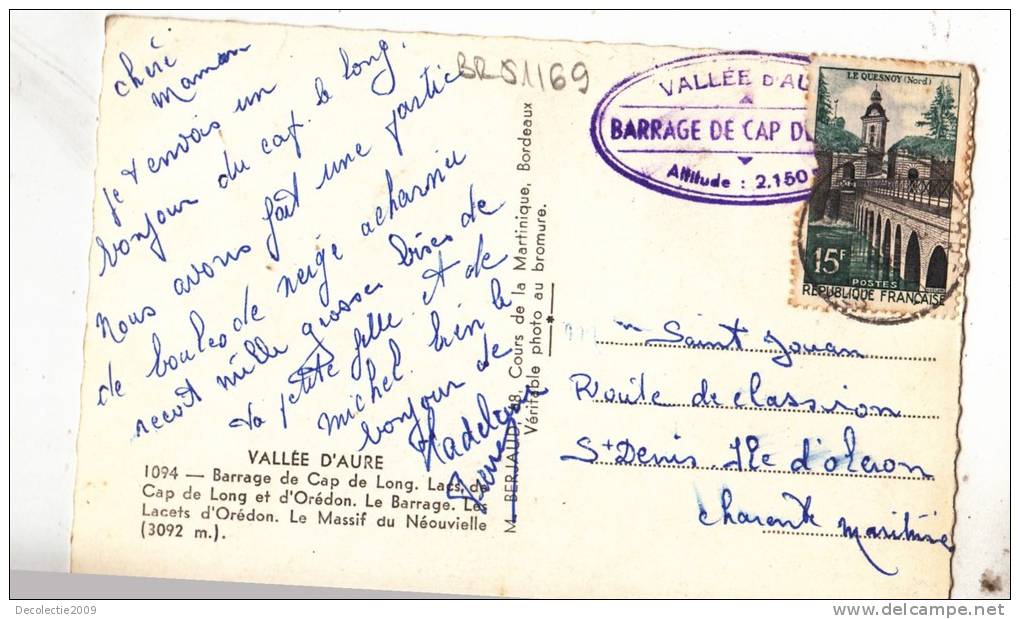 chéri
maman
je t envois un
bonjour du cap. le long.
Nous avons fait une partie
de boules de neige acharnée
recoit mille grosses bises de
ta petite fille. et de
michel. bien le
bonjour de
Madeleine
VALLÉE D'AURE
1094 — Barrage de Cap de Long. Lacs de
Cap de Long et d'Orédon. Le Barrage. Les
Lacets d'Orédon. Le Massif du Néouvielle
(3092 m.).
M. BERJAUD, 98 Cours de la Martinique, Bordeaux
Véritable photo au bromure.
BRS1169
VALLÉE D'AU
BARRAGE DE CAP D
Altitude : 2.150
LE QUESNOY (Nord)
15F
POSTES
RÉPUBLIQUE FRANÇAISE
Saint Jouan
Route de classion
St Denis. Ile d'oleron
Charente maritime
Decolectie2009
http://www.delcampe.net